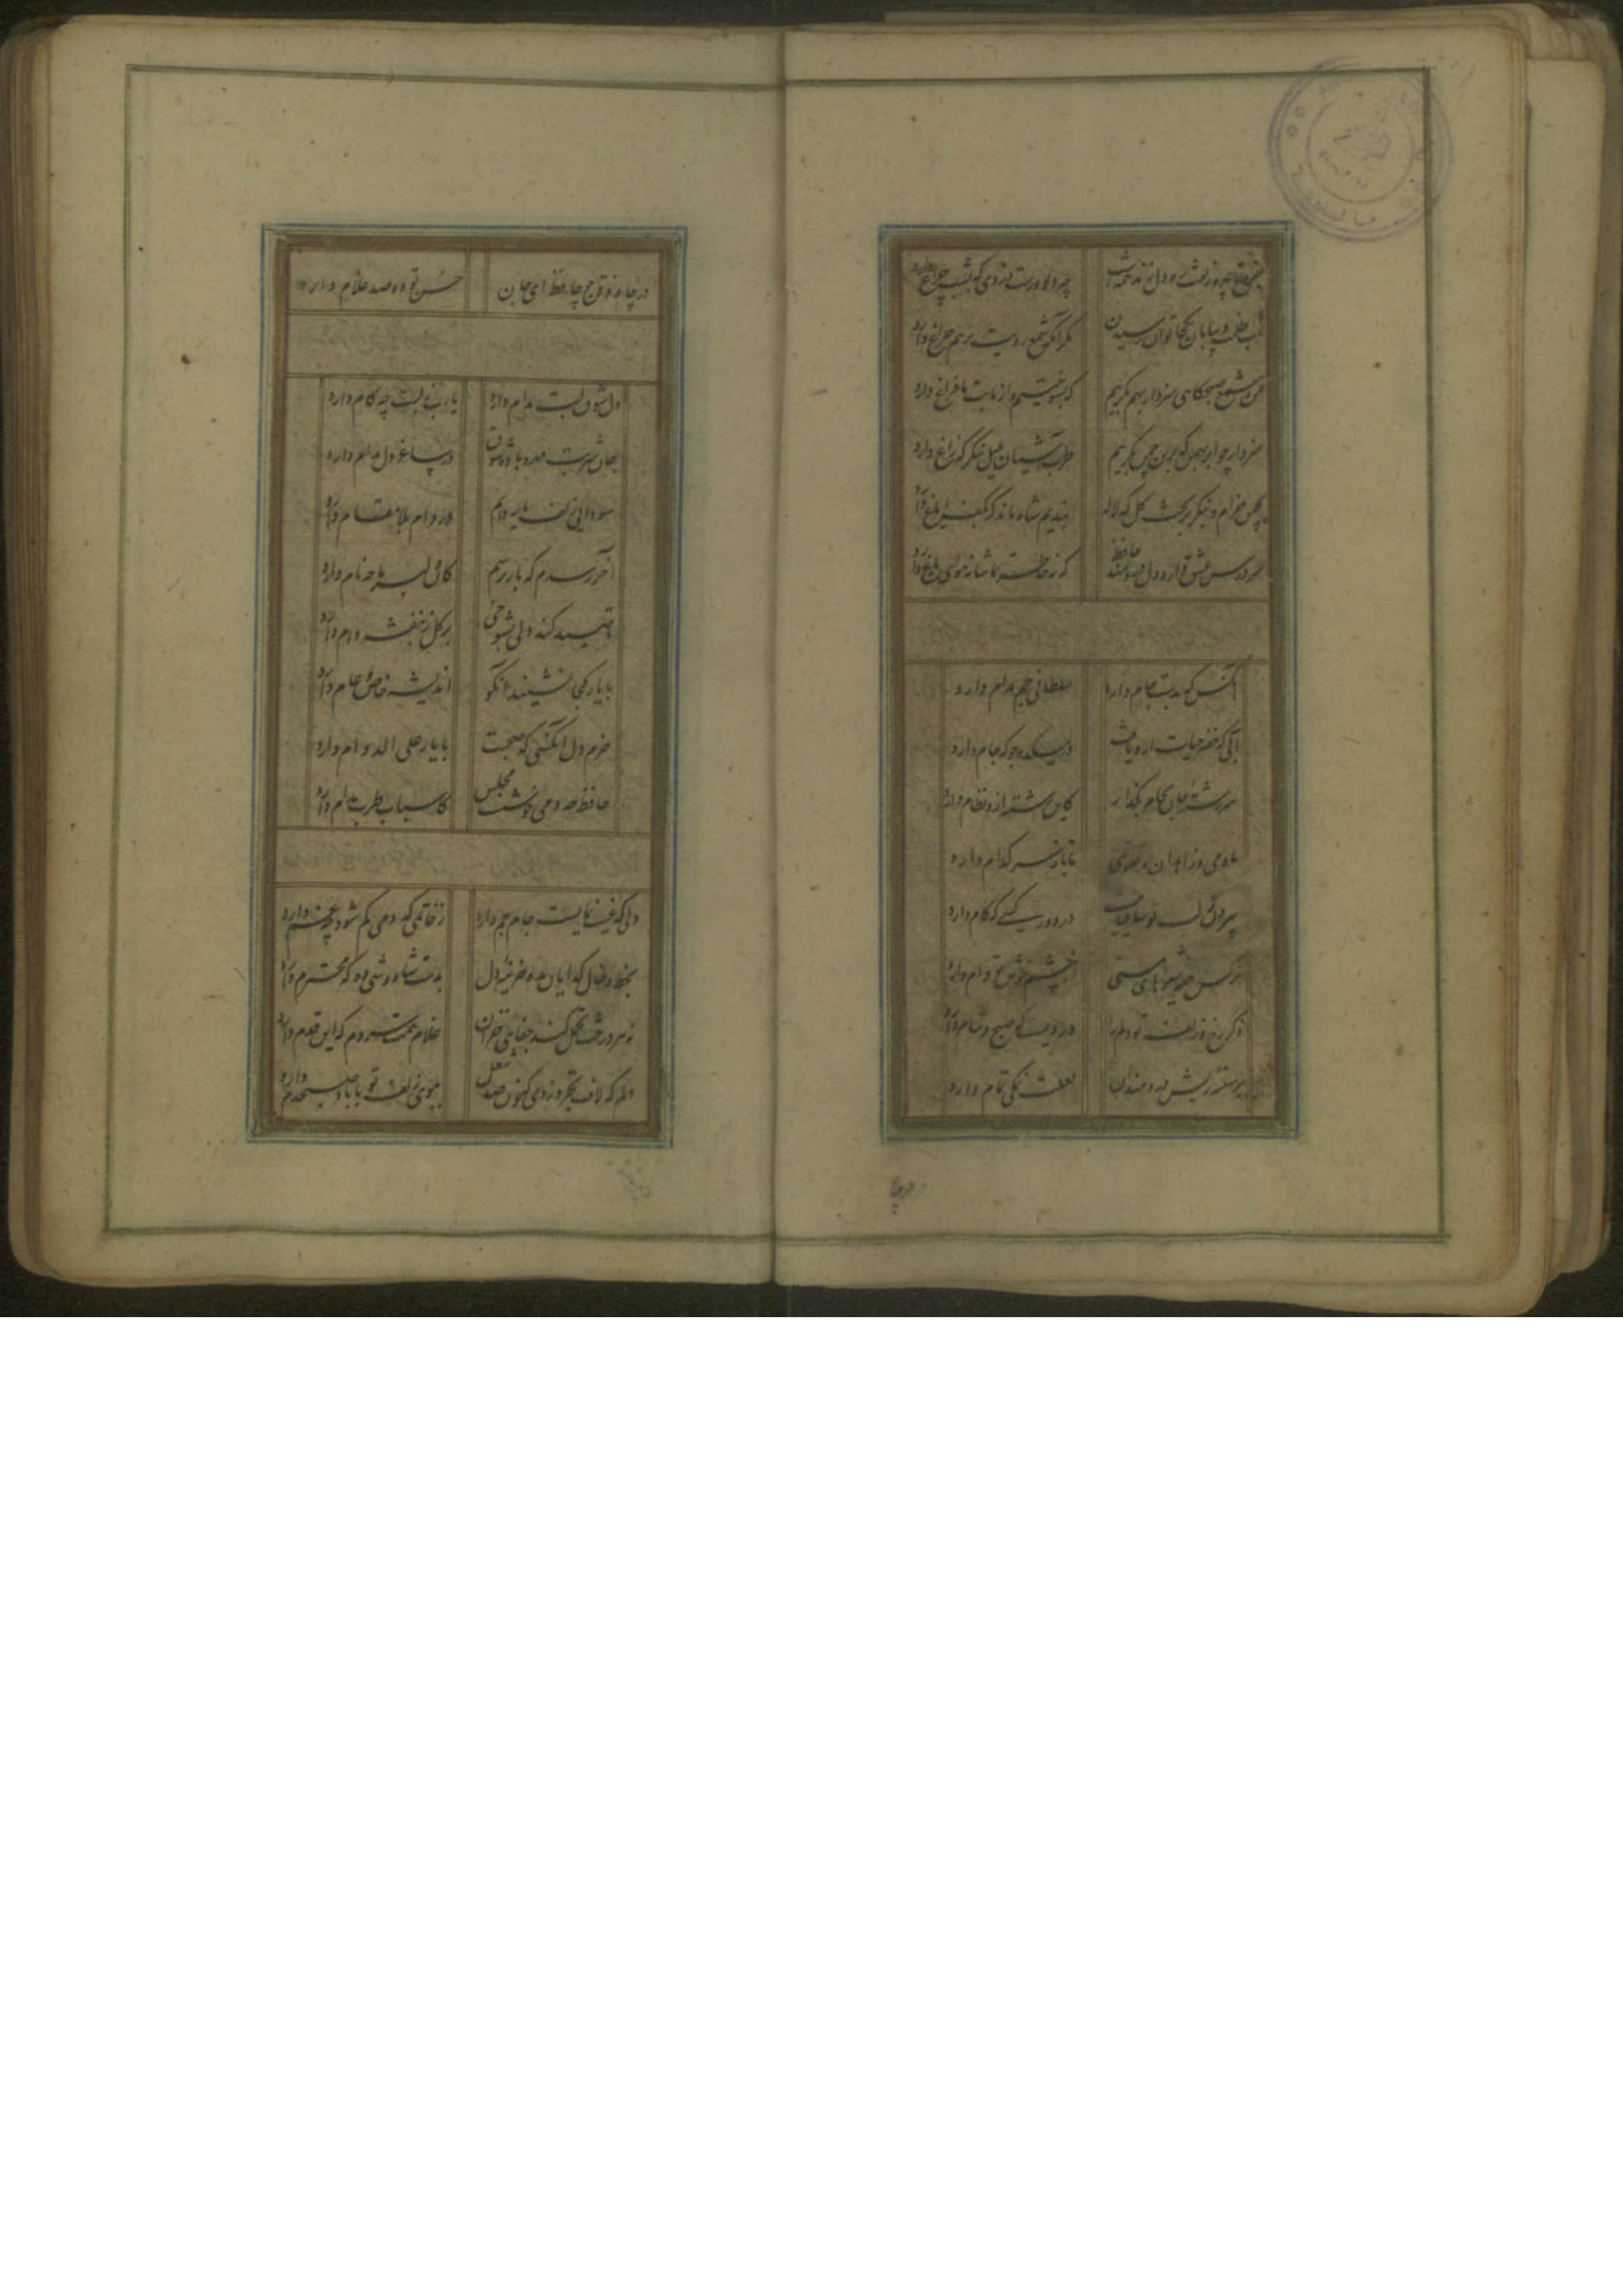 بفروغ چهره زلفت ره دل زند همه شب
چه دلاورست دزدی که بشب چراغ دارد
شب ظلمت و بیابان بکجا توان رسیدن
مگر آنکه شمع رویت برهم چراغ دارد
من و شمع صبحگاهی سزد ار بهم بگرییم
که بسوختیم و از ما بت ما فراغ دارد
سزدار چو ابر بهمن که برین چمن بگریم
طرب آشیان بلبل بنگر که زاغ دارد
بچمن خرام و بنگر بر تخت گل که لاله
بندیم شاه ماند که بکف ایاغ دارد
سر درس عشق دارد دل دردمند حافظ
که نه خاطر تماشا نه هوای باغ دارد
آنکس که بدست جام دارد
سلطانی جم مدام دارد
آبی که خضر حیات ازو یافت
در میکده جو که جام دارد
سررشته جان بجام بگذار
کاین رشته ازو نظام دارد
ما و می و زاهدان و تقوی
تا یار سر کدام دارد
بیرون ز لب تو ساقیا نیست
در دور کسی که کام دارد
نرگس همه شیوهای مستی
از چشم خوش تو وام دارد
ذکر رخ و زلف تو دلم را
وردیست که صبح و شام دارد
بر سینه ریش دردمندان
لعلت نمکی تمام دارد
در چاه
در چاه ذقن چو حافظ ای جان
حسن تو دو صد غلام دارد
دل شوق لبت مدام دارد
یارب ز لبت چه کام دارد
جان شربت مهر و باده شوق
در ساغر دل مدام دارد
سودایی زلف یار دایم
در دام بلا مقام دارد
آخر رسدم که باز پرسم
کان دلبر ما چه نام دارد
تا صید کند دلی بشوخی
بر گل ز بنفشه دام دارد
با یار کجا نشیند آنکو
اندیشه خاص و عام دارد
خرم دل آنکسی که صحبت
با یار علی الدوام دارد
حافظ چو دمی خوشست مجلس
کاسباب طرب مدام دارد
دلی که غیب نمایست جام جم دارد
ز خاتمی که دمی گم شود چه غم دارد
بخط و خال گدایان مده خزینه دل
بدست شاه وشی ده که محترم دارد
نه هر درخت تحمل کند جفای خزان
غلام همت سروم که این قدم دارد
دلم که لاف تجرد زدی کنون صد شغل
ببوی زلف تو با باد صبحدم دارد